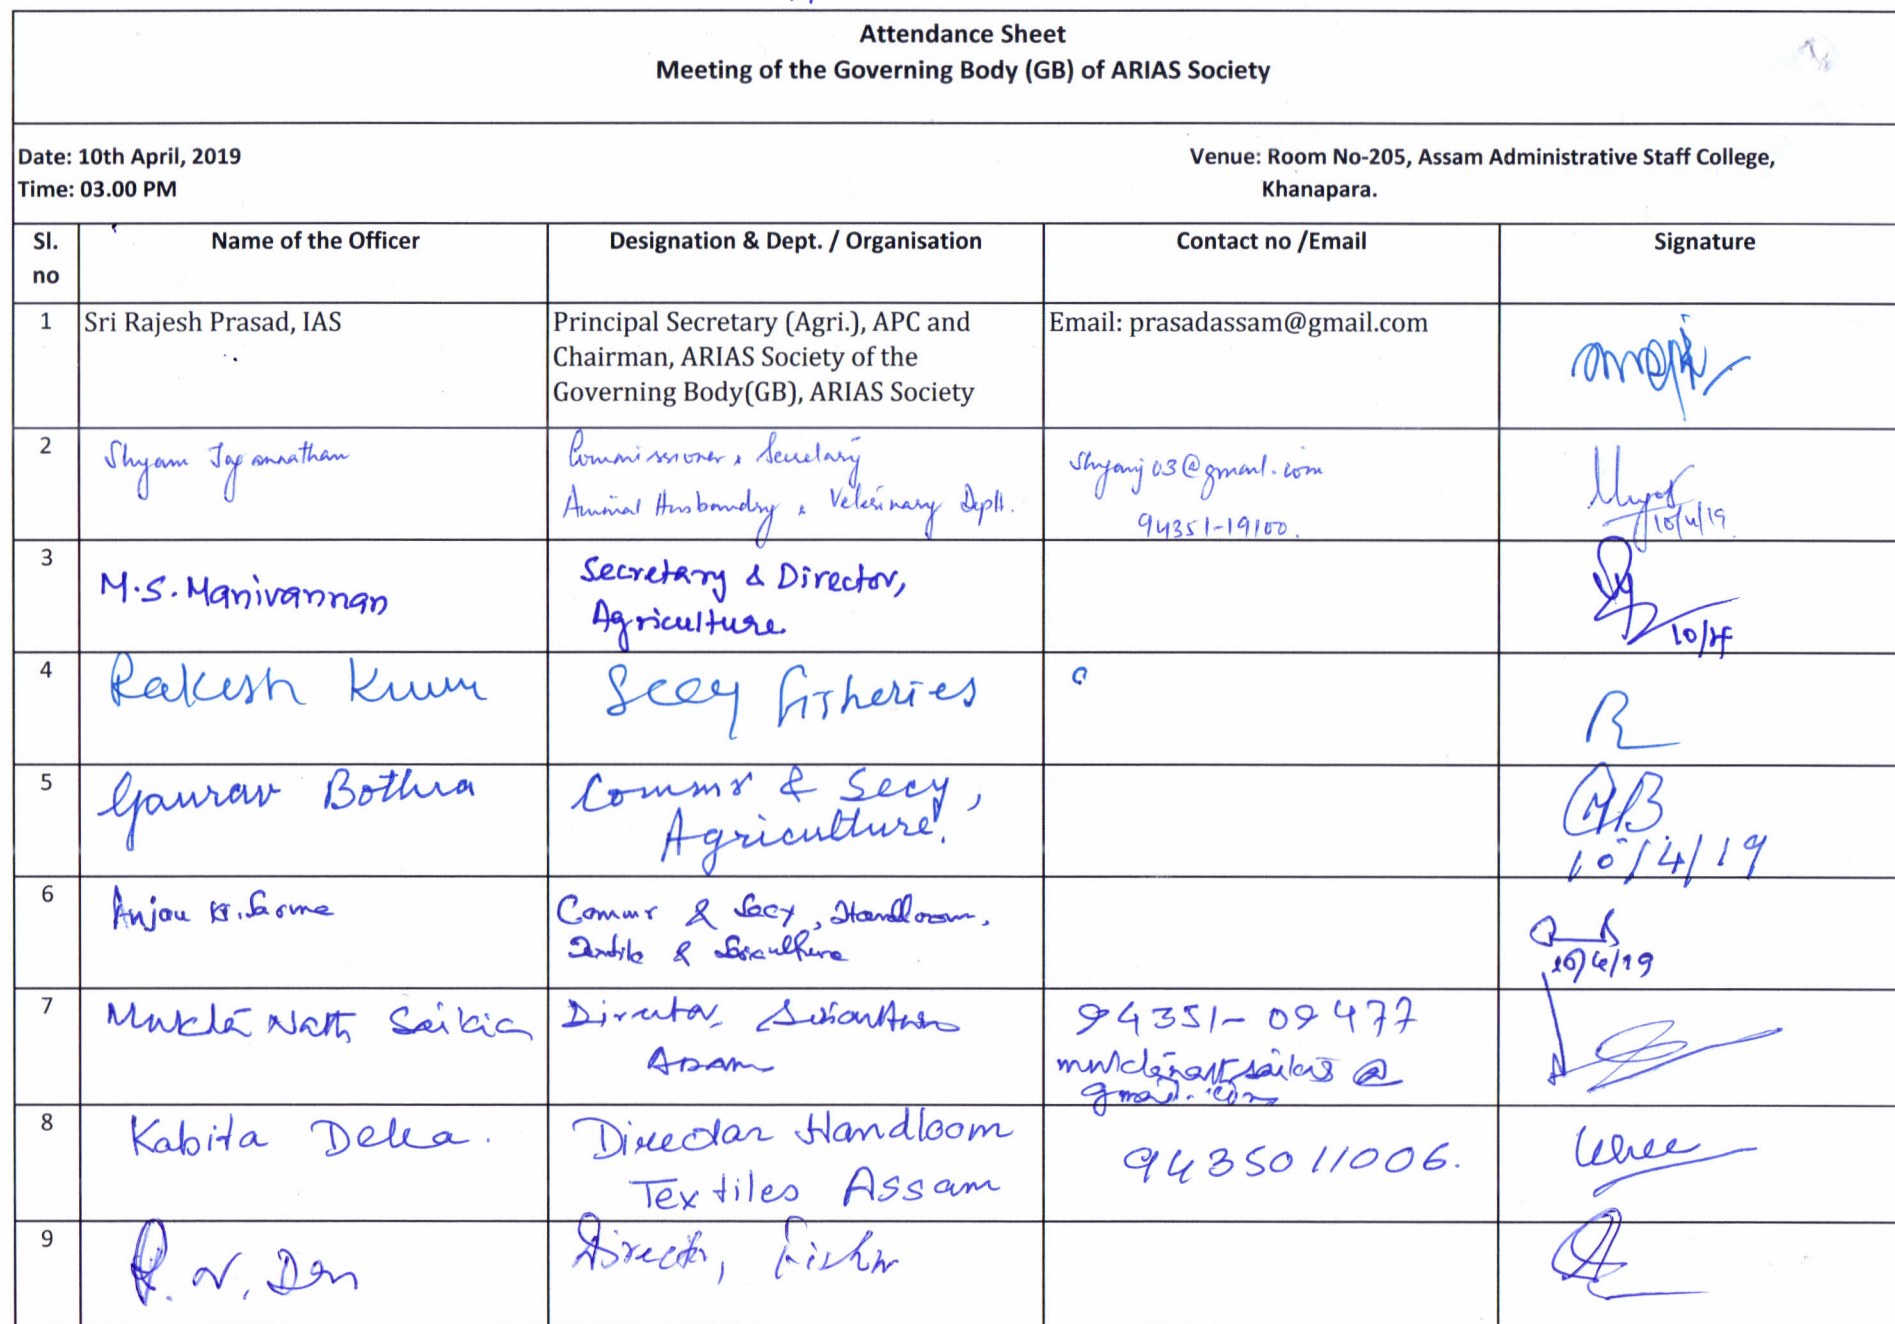 Attendance Sheet
Meeting of the Governing Body (GB) of ARIAS Society
Date: 10th April, 2019
Time: 03.00 PM
Venue: Room No-205, Assam Administrative Staff College,
Khanapara.
Sl. no
Name of the Officer
Designation & Dept. / Organisation
Contact no /Email
Signature
1
Sri Rajesh Prasad, IAS
Principal Secretary (Agri.), APC and
Chairman, ARIAS Society of the
Governing Body(GB), ARIAS Society
Email: prasadassam@gmail.com
2
Shyam Jagannathan
Commissioner & Secretary
Animal Husbandry & Veterinary Deptt.
shyamj03@gmail.com
94351-19100.
10/4/19
3
M.S. Manivannan
Secretary & Director,
Agriculture.
10/4
4
Rakesh Kumar
Secy Fisheries
5
Gaurav Bothra
Commr & Secy,
Agriculture.
GB
10/4/19
6
Anjan Kr. Sarma
Commr & Secy, Handloom,
Textile & Sericulture
10/4/19
7
Mukta Nath Saikia
Director, Sericulture
Assam
94351-09477
muktanathsaikia@
gmail.com
8
Kabita Deka.
Director Handloom
Textiles Assam
9435011006.
9
Director, Fishery